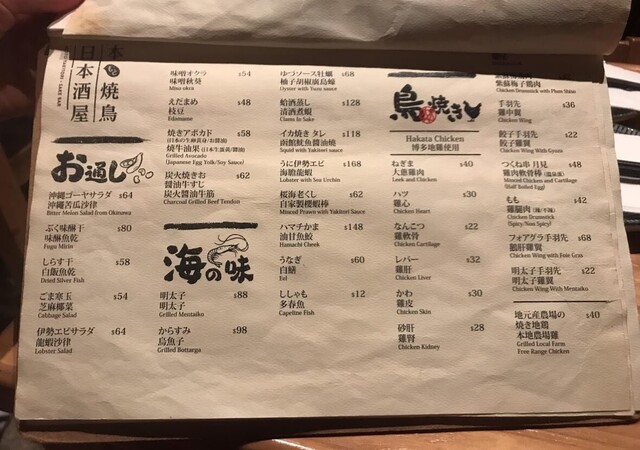 本 燒鳥
日本酒屋
YAKITORI • SAKE BAR
お通し
沖縄ゴーヤサラダ $64
沖繩苦瓜沙律
Bitter Melon Salad from Okinawa
ふぐ味醂干 $80
味醂魚乾
Fugu Mirin
しらす干 $58
白飯魚乾
Dried Silver Fish
ごま寒玉 $54
芝麻椰菜
Cabbage Salad
伊勢エビサラダ $64
龍蝦沙律
Lobster Salad
味噌オクラ $54
味噌秋葵
Miso okra
えだまめ $48
枝豆
Edamame
焼きアボカド $58
燒牛油果 (日本生蛋黃/醬油)
Grilled Avocado
(Japanese Egg Yolk/Soy Sauce)
炭火焼きお $62
醤油牛すじ
炭火醬油牛筋
Charcoal Grilled Beef Tendon
海の味
明太子 $88
明太子
Grilled Mentaiko
からすみ $98
烏魚子
Grilled Bottarga
ゆづソース牡蠣 $68
柚子胡椒廣島蠔
Oyster with Yuzu sauce
蛤酒蒸し $128
清酒煮蜆
Clams In Sake
イカ焼き タレ $118
函館魷魚醬油燒
Squid with Yakitori sauce
うに伊勢エビ $168
海膽龍蝦
Lobster with Sea Urchin
桜海老くし $62
自家製櫻蝦棒
Minced Prawn with Yakitori Sauce
ハマチかま $148
油甘魚鮫
Hamachi Cheek
うなぎ $60
白鱔
Eel
ししゃも $12
多春魚
Capeline Fish
鳥焼き
Hakata Chicken
博多地雞使用
ねぎま $40
大蔥雞肉
Leek and Chicken
ハツ $30
雞心
Chicken Heart
なんこつ $22
雞軟骨
Chicken Cartilage
レバー $32
雞肝
Chicken Liver
かわ $30
雞皮
Chicken Skin
砂肝 $28
雞腎
Chicken Kidney
紫蘇梅子雞肉
Chicken Drumstick with Plum Shiso
手羽先 $36
雞中翼
Chicken Wing
餃子手羽先 $22
餃子雞翼
Chicken Wing With Gyoza
つくね串 月見 $48
雞肉軟骨棒
Minced Chicken and Cartilage
(Half Boiled Egg)
もも $42
雞腿肉
Chicken Drumstick
(Spicy/Non Spicy)
フォアグラ手羽先 $68
鵝肝雞翼
Chicken Wing with Foie Gras
明太子手羽先 $22
明太子雞翼
Chicken Wing With Mentaiko
地元産農場の $40
焼き地鶏
本地農場雞
Grilled Local Farm
Free Range Chicken